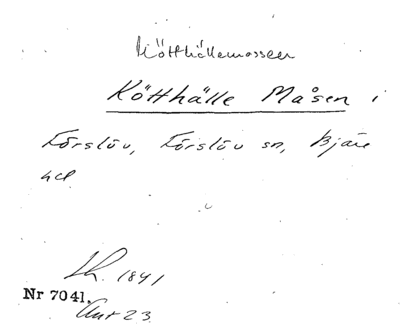 Kötthällemossen
Kötthälle Måsen i
Förslöv, Förslöv sn, Bjäre
hd
Lh. 1841
Nr 7041.
Akt 23